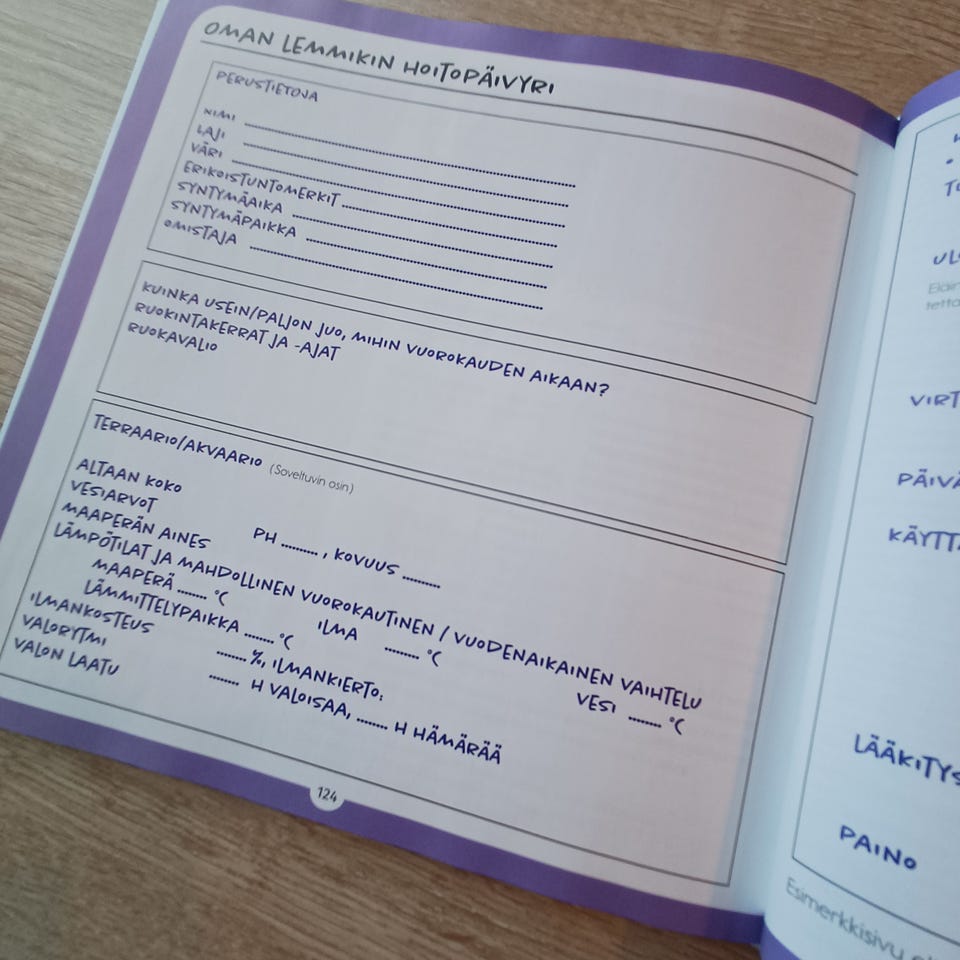 OMAN LEMMIKIN HOITOPÄIVYRI
PERUSTIETOJA
NIMI
LAJI
VÄRI
ERIKOISTUNTOMERKIT
SYNTYMÄAIKA
SYNTYMÄPAIKKA
OMISTAJA
KUINKA USEIN/PALJON JUO, MIHIN VUOROKAUDEN AIKAAN?
RUOKINTAKERRAT JA -AJAT
RUOKAVALIO
TERRAARIO/AKVAARIO (Soveltuvin osin)
ALTAAN KOKO
VESIARVOT PH ........, KOVUUS ........
MAAPERÄN AINES
LÄMPÖTILAT JA MAHDOLLINEN VUOROKAUTINEN / VUODENAIKAINEN VAIHTELU
MAAPERÄ ....... °C ILMA ........ °C VESI ....... °C
LÄMMITTELYPAIKKA ....... °C
ILMANKOSTEUS ....... %, ILMANKIERTO:
VALORYTMI ....... H VALOISAA, ....... H HÄMÄRÄÄ
VALON LAATU
124
PAINO
Esimerkkisivu